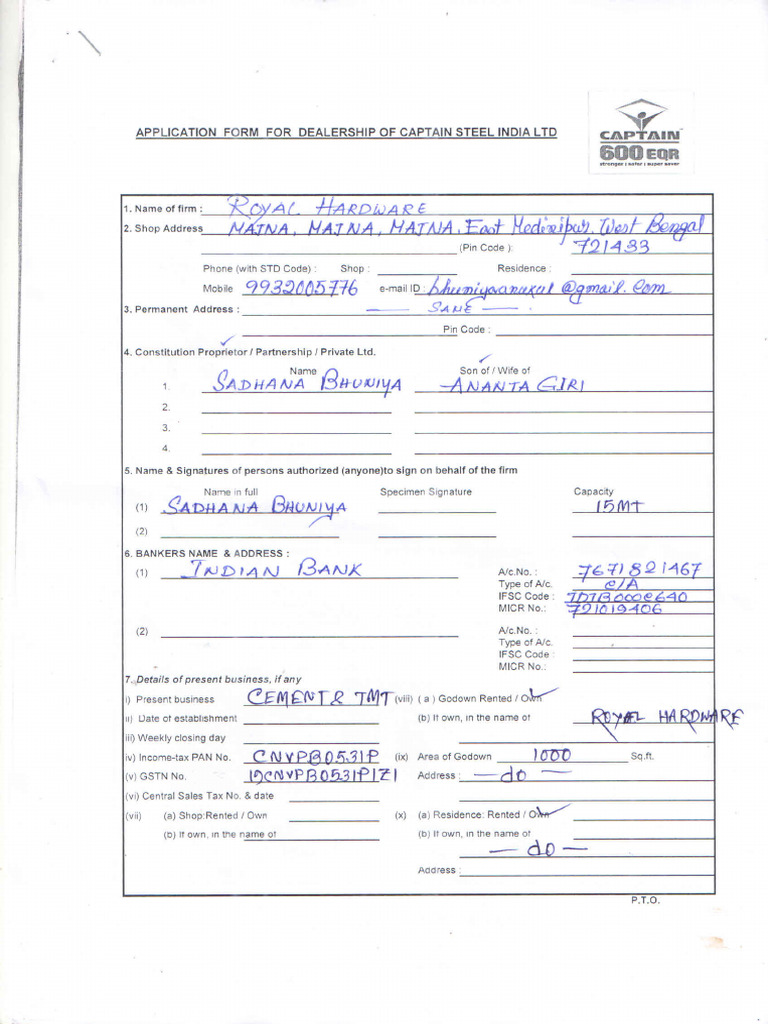 APPLICATION FORM FOR DEALERSHIP OF CAPTAIN STEEL INDIA LTD
CAPTAIN
600 EQR
stronger | safer | super saver
1. Name of firm : ROYAL HARDWARE
2. Shop Address MAJNA, MAJNA, MAJNA, East Medinipur, West Bengal
(Pin Code ): 721433
Phone (with STD Code) : Shop : Residence :
Mobile 9932005776 e-mail ID : bhuniyaanukul@gmail.com
3. Permanent Address : — SAME —
Pin Code :
4. Constitution Proprietor / Partnership / Private Ltd. ✓
Name Son of / Wife of ✓
1. SADHANA BHUNIYA ANANTA GIRI
2.
3.
4.
5. Name & Signatures of persons authorized (anyone)to sign on behalf of the firm
Name in full Specimen Signature Capacity
(1) SADHANA BHUNIYA 15MT
(2)
6. BANKERS NAME & ADDRESS :
(1) INDIAN BANK A/c.No. : 7671821467
Type of A/c. C/A
IFSC Code : IDIB000C640
MICR No.: 721019406
(2) A/c.No. :
Type of A/c.
IFSC Code :
MICR No.:
7. Details of present business, if any
i) Present business CEMENT & TMT (viii) ( a ) Godown Rented / Own ✓
ii) Date of establishment (b) If own, in the name of ROYAL HARDWARE
iii) Weekly closing day
iv) Income-tax PAN No. CNVPB0531P (ix) Area of Godown 1000 Sq.ft.
(v) GSTN No. 19CNVPB0531P1Z1 Address : — do —
(vi) Central Sales Tax No. & date
(vii) (a) Shop:Rented / Own (x) (a) Residence: Rented / Own ✓
(b) If own, in the name of (b) If own, in the name of
— do —
Address :
P.T.O.